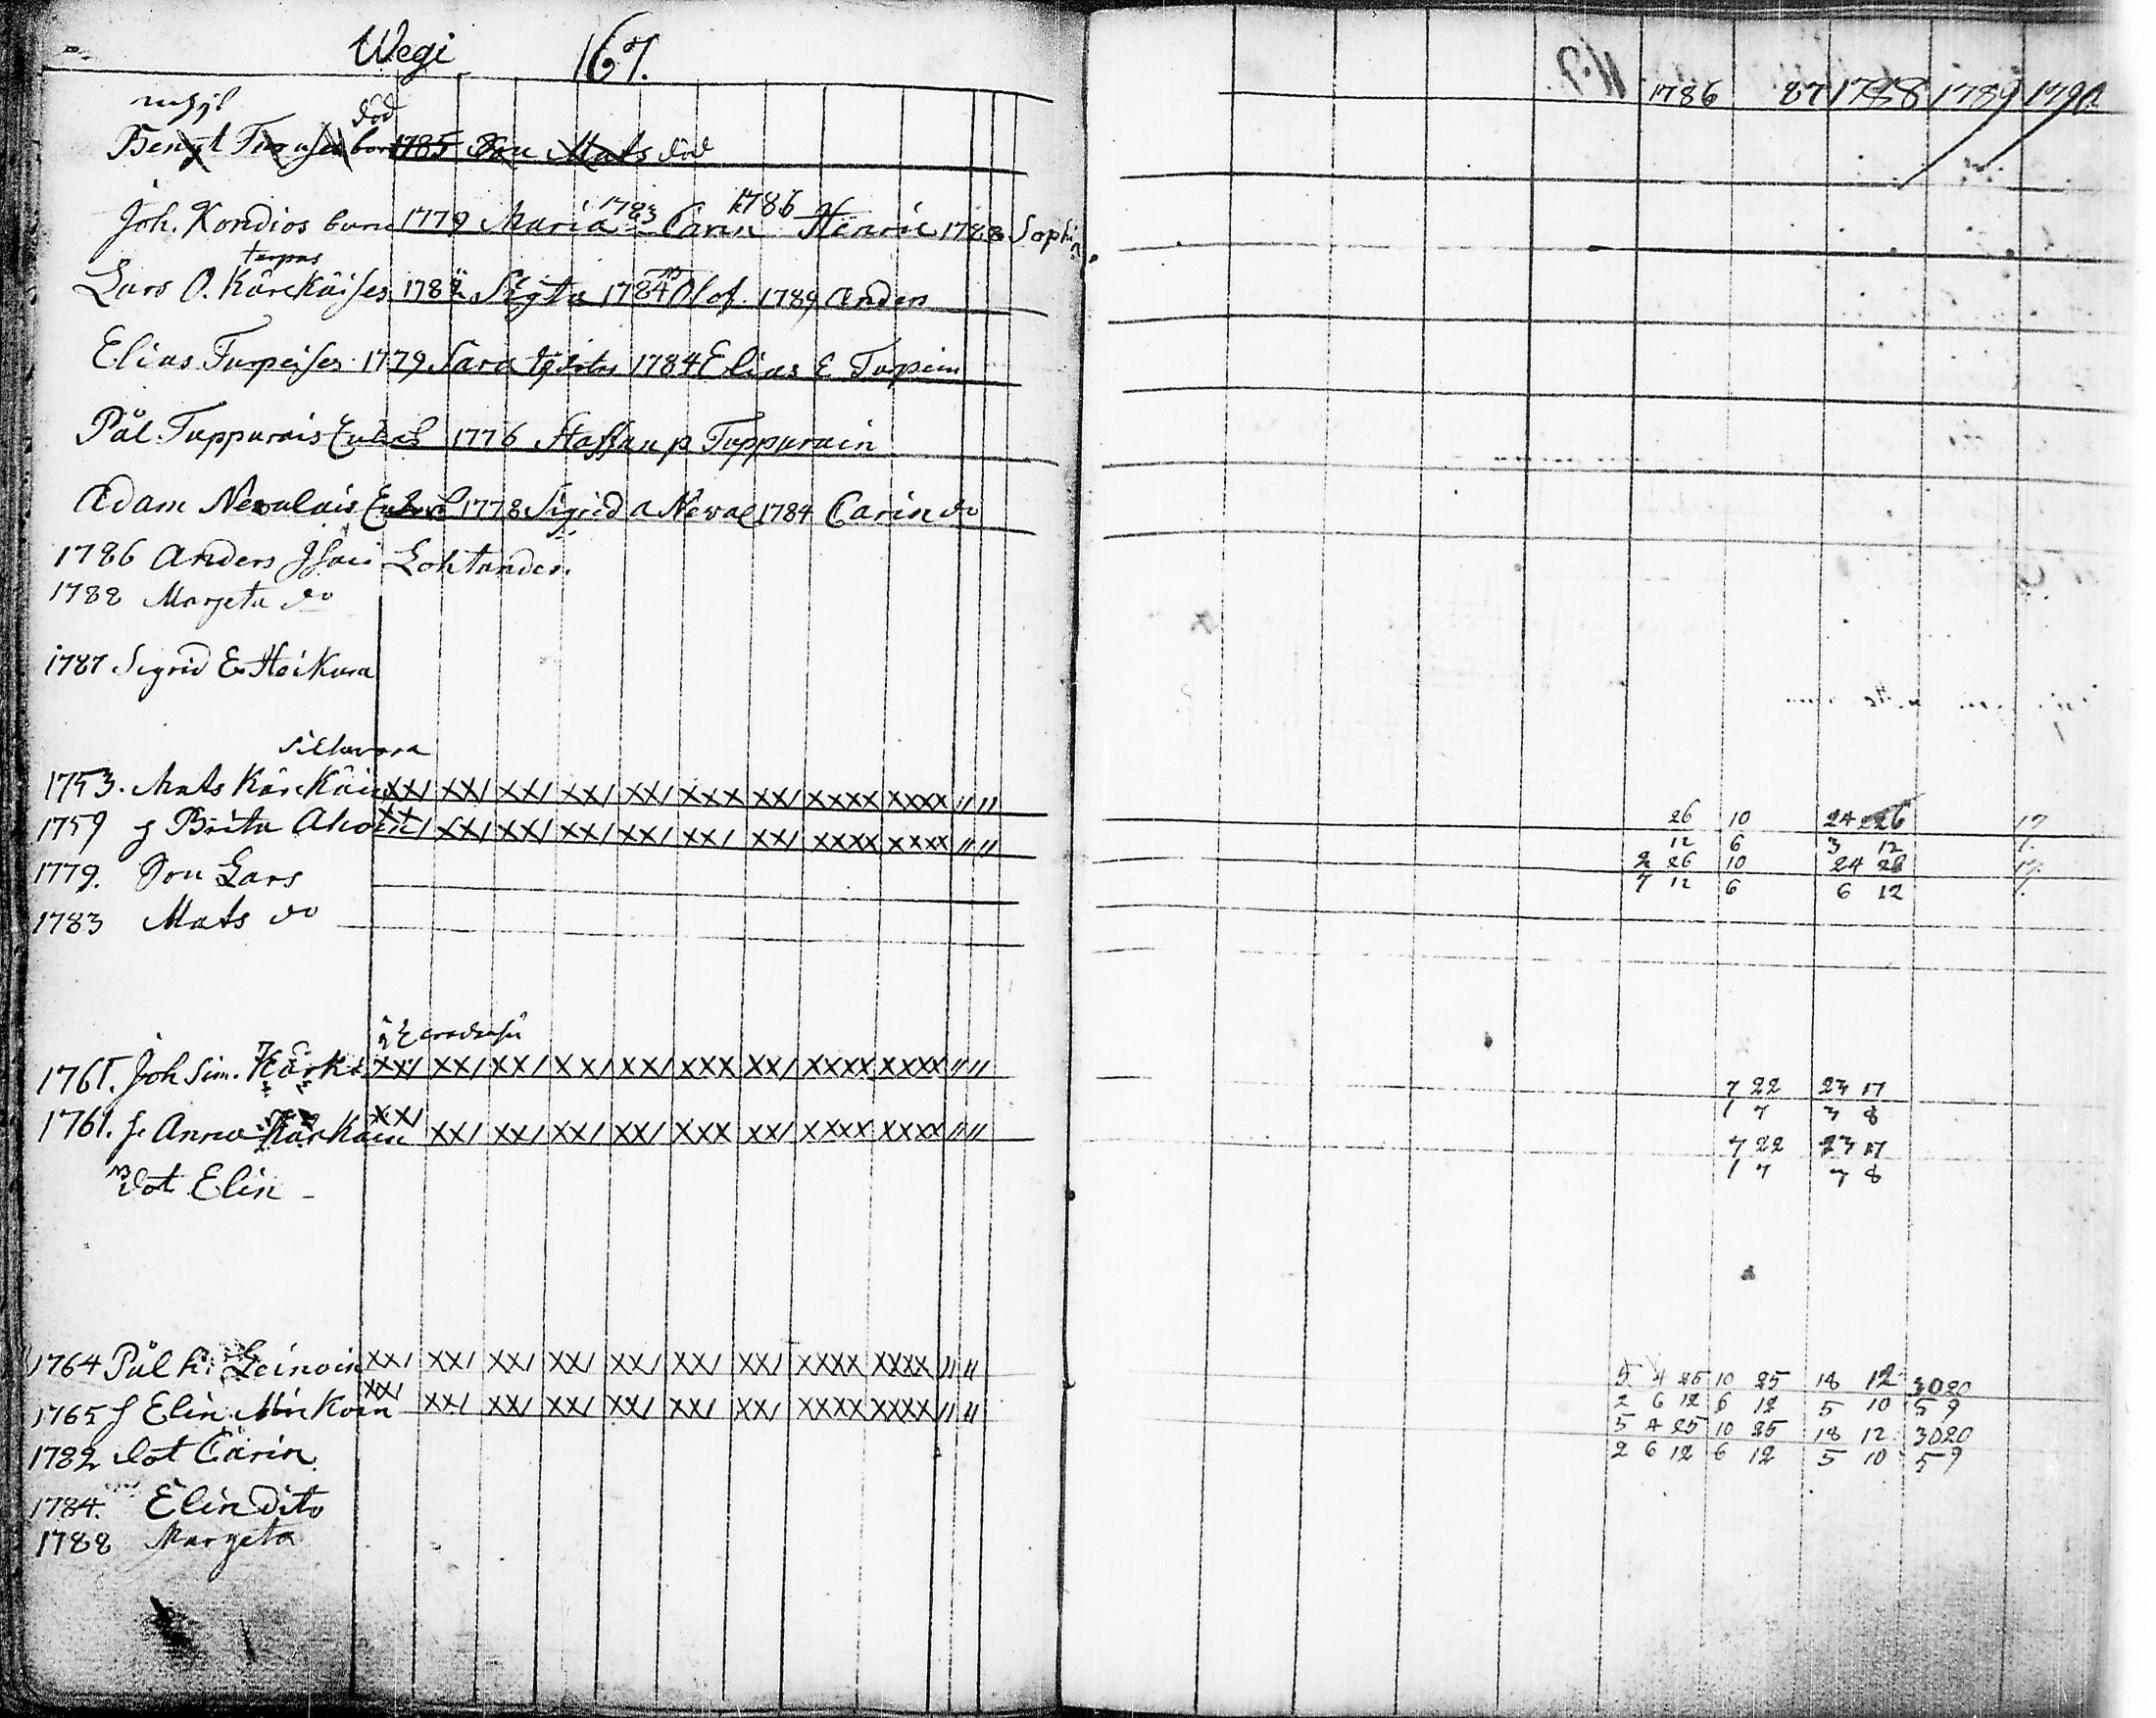 Wegi 167.
död
Bengt barn 1785 Son Mats död
1783 1786
Joh. Kondios barn 1779 Maria Carin Henric 1788 Sophia
torpus
Lars O. Kärckäises 1782 1784 Olof 1789 Anders
Elias Turpeises 1779 Sara 1784 Elias E Turpein
Pål Tuppurais 1776 Staffan p Tuppurain
Adam Newalais 1778 Sigrid a Newal 1784 Carin do
1786 Anders Lohtander.
1788 Margeta do
1787 Sigrid E. Heikura
1753. Mats Kärckäin XX/ XX/ XX/ XX/ XX/ XXX XX/ XXXX XXXX // //
1759 Brita Ahoin XX/ XX/ XX/ XX/ XX/ XX/ XX/ XXXX XXXX // //
1779. Son Lars
1783 Mats do
1761. Joh Sim. Kärk XX/ XX/ XX/ XX/ XX/ XXX XX/ XXXX XXXX // //
1761. Anna Kärkäin XX/ XX/ XX/ XX/ XX/ XXX XX/ XXXX XXXX // //
dot Elin
1764 Pål h: Leinoin XX/ XX/ XX/ XX/ XX/ XX/ XX/ XXXX XXXX // //
1765 Elin Minkoin XX/ XX/ XX/ XX/ XX/ XX/ XX/ XXXX XXXX // //
1782 dot Carin
1784. Elin dito
1788 Margeta
1786 87 1788 1789 1790
26 10 24 26 17
12 6 3 12
2 26 10 24 28 17
7 12 6 6 12
7 22 23 17
1 7 3 8
7 22 23 17
1 7 3 8
5 4 25 10 25 18 12 30 20
2 6 12 6 12 5 10 5 9
5 4 25 10 25 18 12 30 20
2 6 12 6 12 5 10 5 9